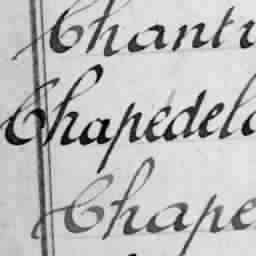 Chanti
Chapedela
Chape